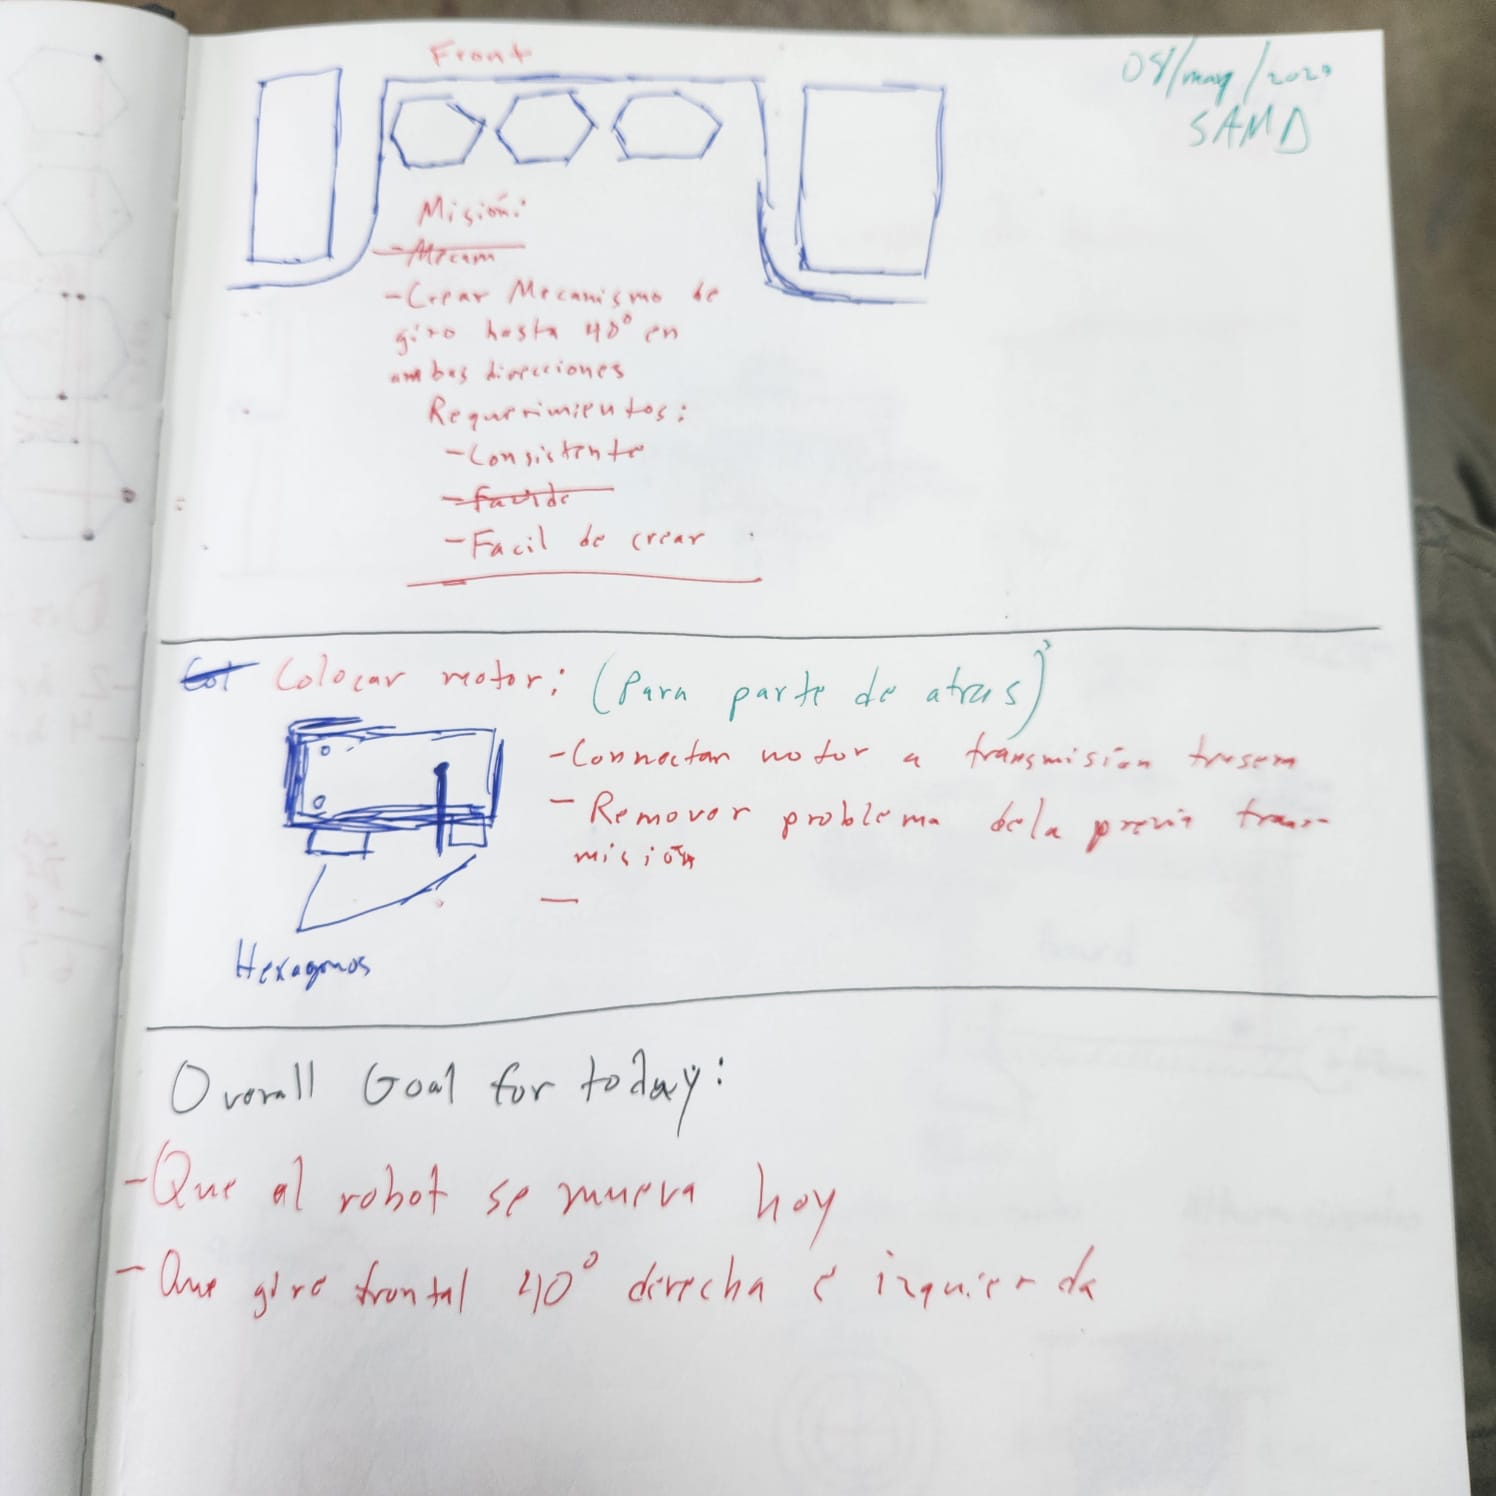 Front
08/may/2020
SAMD
Misión:
- Mecam
- Crear Mecanismo de
giro hasta 40° en
ambas direcciones
Requerimientos:
- Consistente
- Facil de crear
Col Colocar motor: (Para parte de atras)
- Connectar motor a transmisión trasera
- Remover problema dela previa trans-
misión
-
Hexagonos
Overall Goal for today:
- Que al robot se mueva hoy
- Que giro frontal 40° derecha e izquierda